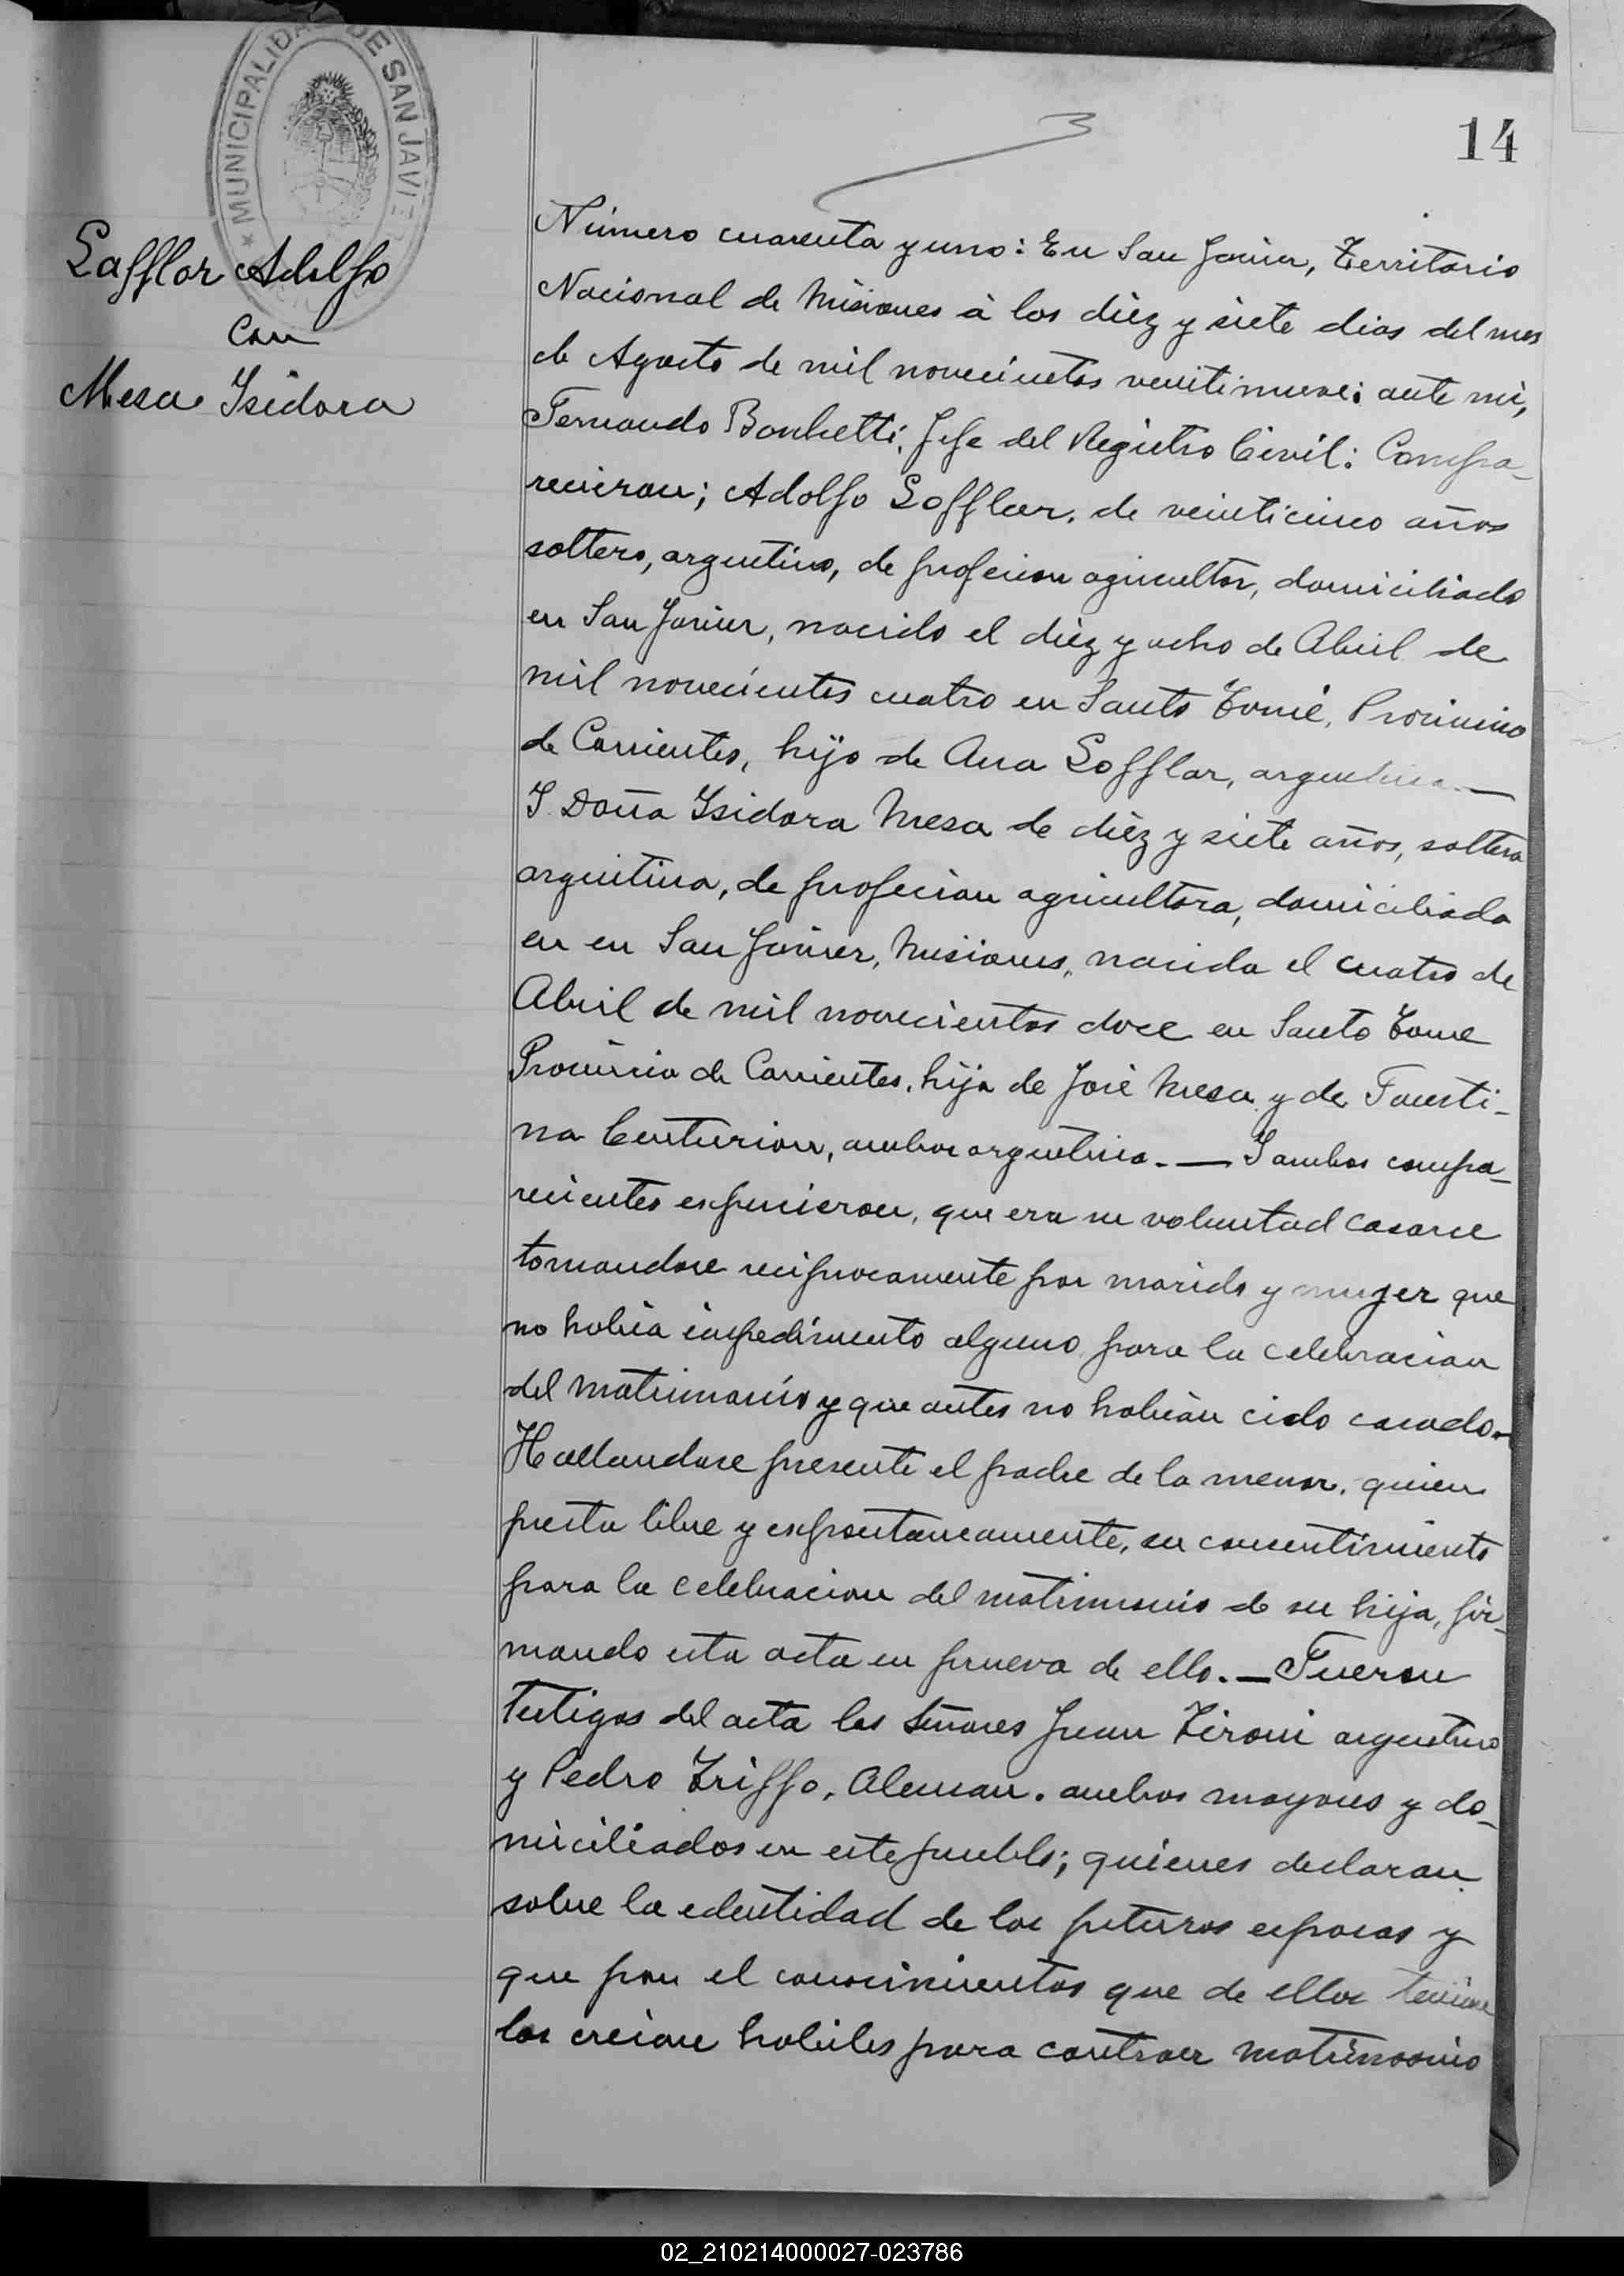 MUNICIPALIDAD DE SAN JAVIER
14
Lafflor Adolfo
con
Mesa Isidora
Número cuarenta y uno: En San Javier, Territorio
Nacional de Misiones à los diéz y siete dias del mes
de Agosto de mil novecientos veintinueve: ante mi,
Fernando Bonketti, Jefe del Registro Civil: Compa-
recieron; Adolfo Loffler, de veinticinco años
soltero, argentino, de profecion agricultor, domiciliado
en San Javier, nacido el diéz y ocho de Abril de
mil novecientos cuatro en Santo Tomé, Provincia
de Corrientes, hijo de Ana Lofflar, argentina.—
Y Doña Isidora Mesa de diéz y siete años, soltera
argentina, de profecion agricultora, domiciliada
en en San Javier, Misiones, nacida el cuatro de
Abril de mil novecientos doce en Santo Tome
Provincia de Corrientes, hija de José Mesa y de Fausti-
na Centurion, ambos argentinos.— Y ambos compa-
recientes expucieron, que era su voluntad casarce
tomandose reciprocamente por marido y muger que
no habia impedimento alguno para la celebracion
del matrimonio y que antes no habian cido casados
Hallandose presente el padre de la menor, quien
presta libre y expontaneamente, su consentimiento
para la celebracion del matrimonio de su hija, fir-
mando esta acta en prueva de ello.— Fueron
testigos del acta los Señores Juan Tironi argentino
y Pedro Triffo, Aleman. ambos mayores y do-
miciliados en este pueblo; quienes declaran
sobre la edentidad de los futuros esposos y
que por el conocimientos que de ellos tenian
los creian habiles para contraer matrimonio
02_210214000027-023786